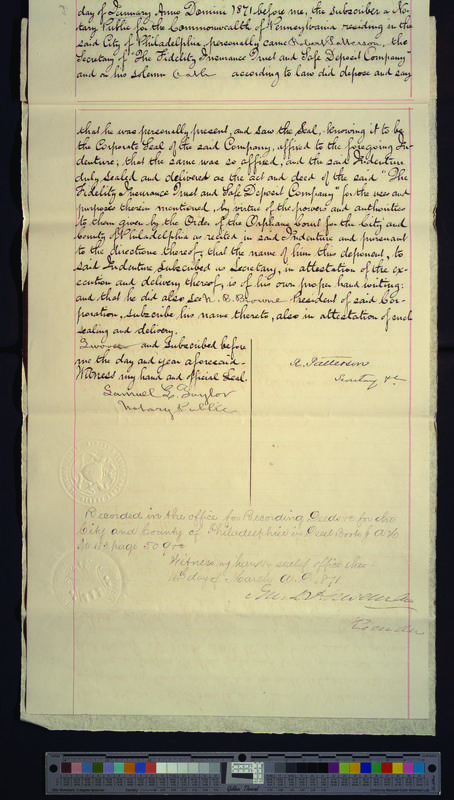 day of January Anno Domini 1871 before me, the subscriber a No-
tary Public for the Commonwealth of Pennsylvania residing in the
said City of Philadelphia, personally came Robert Patterson, the
Secretary of "The Fidelity Insurance Trust and Safe Deposit Company"
and on his solemn Oath according to law did depose and say
that he was personally present, and saw the Seal, knowing it to be
the Corporate Seal of the said Company, affixed to the foregoing In-
denture; that the same was so affixed, and the said Indenture
duly sealed and delivered as the act and deed of the said "The
Fidelity Insurance Trust and Safe Deposit Company" for the uses and
purposes therein mentioned, by virtue of the powers and authorities
to them given by the Order of the Orphans Court for the City and
County of Philadelphia as recited in said Indenture and pursuant
to the directions thereof; that the name of him this deponent, to
said Indenture subscribed as Secretary, in attestation of the ex-
ecution and delivery thereof, is of his own proper hand writing:
and that he did also see N. B. Browne President of said Cor-
poration, subscribe his name thereto, also in attestation of such
sealing and delivery.
Sworn and Subscribed before
me the day and year aforesaid.
Witness my hand and official Seal.
Samuel L. Taylor
Notary Public
R. Patterson
Secretary &c
Recorded in the office for Recording Deeds &c for the
City and County of Philadelphia in Deed Book
page 50 &c
Witness my hand & seal of office this
day of March A.D. 1871
Recorder